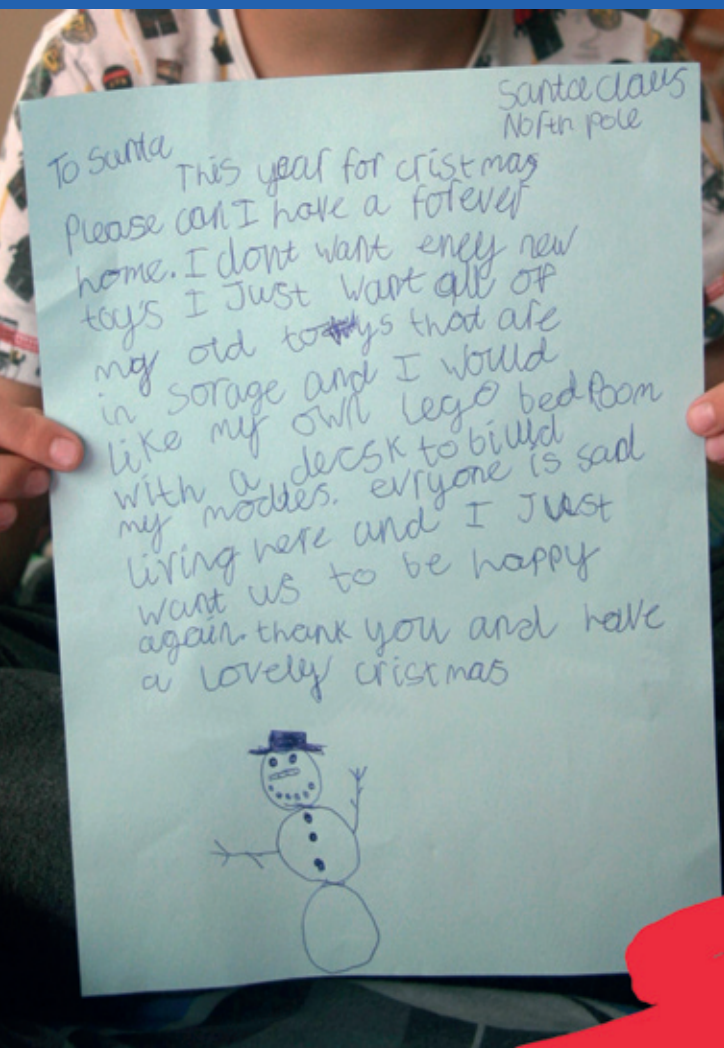 Santa claus
North pole
To Santa
This year for cristmas
Please can I have a forever
home. I dont want eney new
toy's I Just want all of
my old toys that are
in sorage and I would
like my own Lego bedRoom
with a decsk to billd
my moddles. evryone is sad
living here and I Just
want us to be happy
again. thank you and have
a lovely cristmas